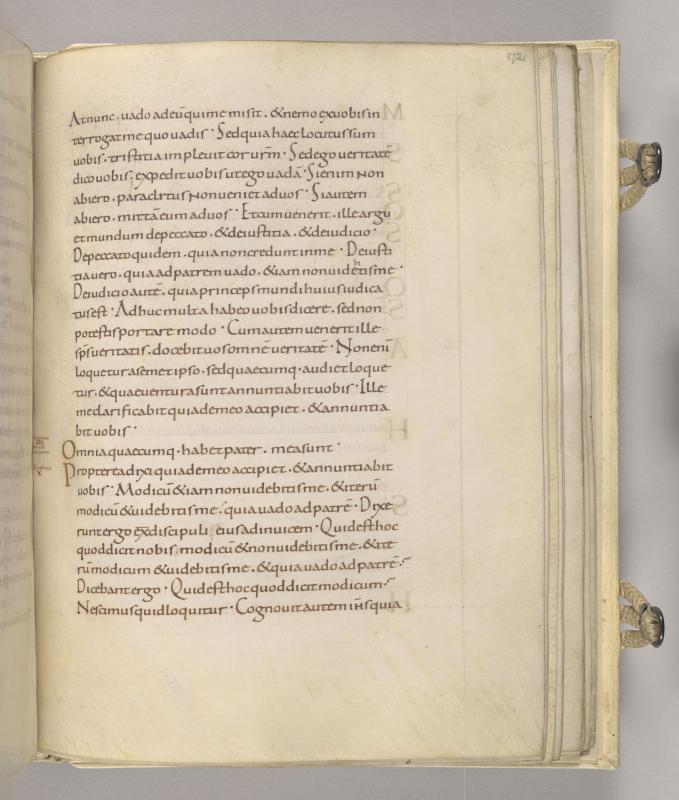 172
At nunc, uado ad eū qui me misit. & nemo ex uobis in
terrogat me quo uadis. Sed quia haec locutus sum
uobis. tristitia impleuit cor urm̄. Sed ego ueritatē
dico uobis; expedit uobis ut ego uadā. Si enim non
abiero. paraclitus non ueniet ad uos. Si autem
abiero. mittā eum ad uos. Et cum uenerit. ille argu
et mundum de peccato. & de iustitia. & de iudicio.
De peccato quidem. quia non credunt in me. De iusti
tia uero. quia ad patrem uado. & iam non uidebitis me.
De iudicio autē. quia princeps mundi huius iudica
tus est. Adhuc multa habeo uobis dicere. sed non
potestis portare modo. Cum autem uenerit ille
sp̄s ueritatis. docebit uos omnē ueritatē. Non enī
loquetur a semet ipso. sed quaecumq. audiet loque
tur. & quae uentura sunt annuntiabit uobis. Ille
me clarificabit quia de meo accipiet. & annuntia
bit uobis.
Omnia quaecumq. habet pater. mea sunt.
Propterea dixi quia de meo accipiet. & annuntiabit
uobis. Modicū & iam non uidebitis me. & iterū
modicū & uidebitis me. quia uado ad patrē. Dixe
runt ergo ex discipuli eius ad inuicem. Quid est hoc
quod dicit nobis. modicū & non uidebitis me. & ite
rū modicum & uidebitis me. & quia uado ad patrē.
Dicebant ergo. Quid est hoc quod dicit modicum.
Nescimus quid loquitur. Cognouit autem ih̄s quia